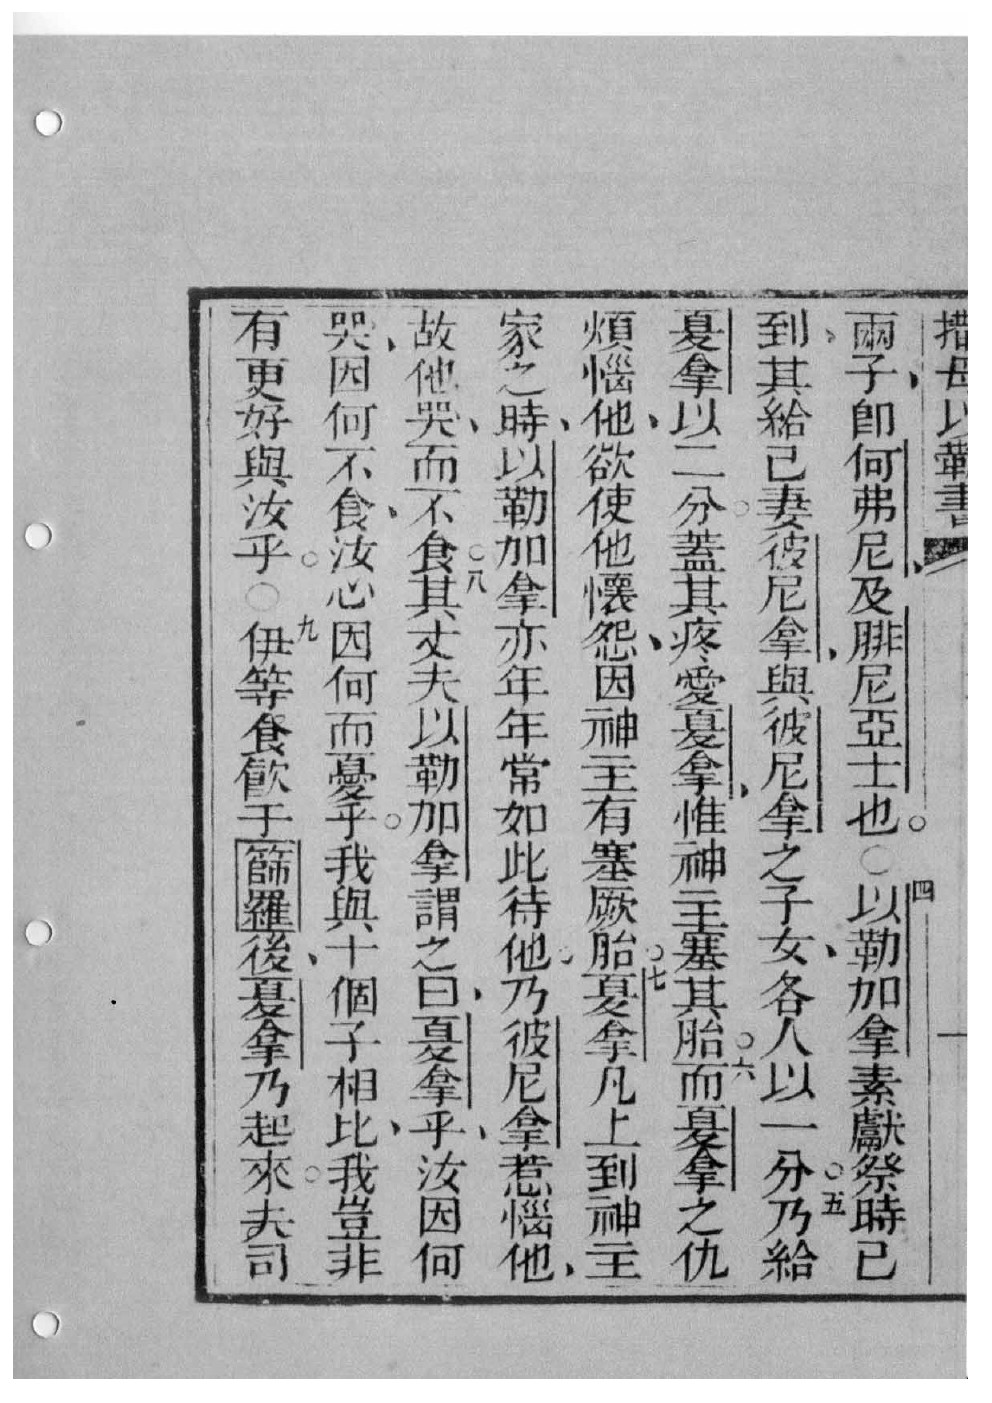 撒母以勒書 一
兩子、卽何弗尼、及腓尼亞士也。○四以勒加拿素獻祭時已
到、其給己妻彼尼拿、與彼尼拿之子女、各人以一分。五乃給
戞拿以二分。蓋其疼愛戞拿、惟神主塞其胎。六而戞拿之仇
煩惱他、欲使他懷怨、因神主有塞厥胎。七戞拿凡上到神主
家之時、以勒加拿亦年年常如此待他。乃彼尼拿惹惱他、
故他哭、而不食。八其丈夫以勒加拿謂之曰、戞拿乎、汝因何
哭、因何不食、汝心因何而憂乎。我與十個子相比、我豈非
有更好與汝乎。○九伊等食飮于篩羅後、戞拿乃起來。夫司